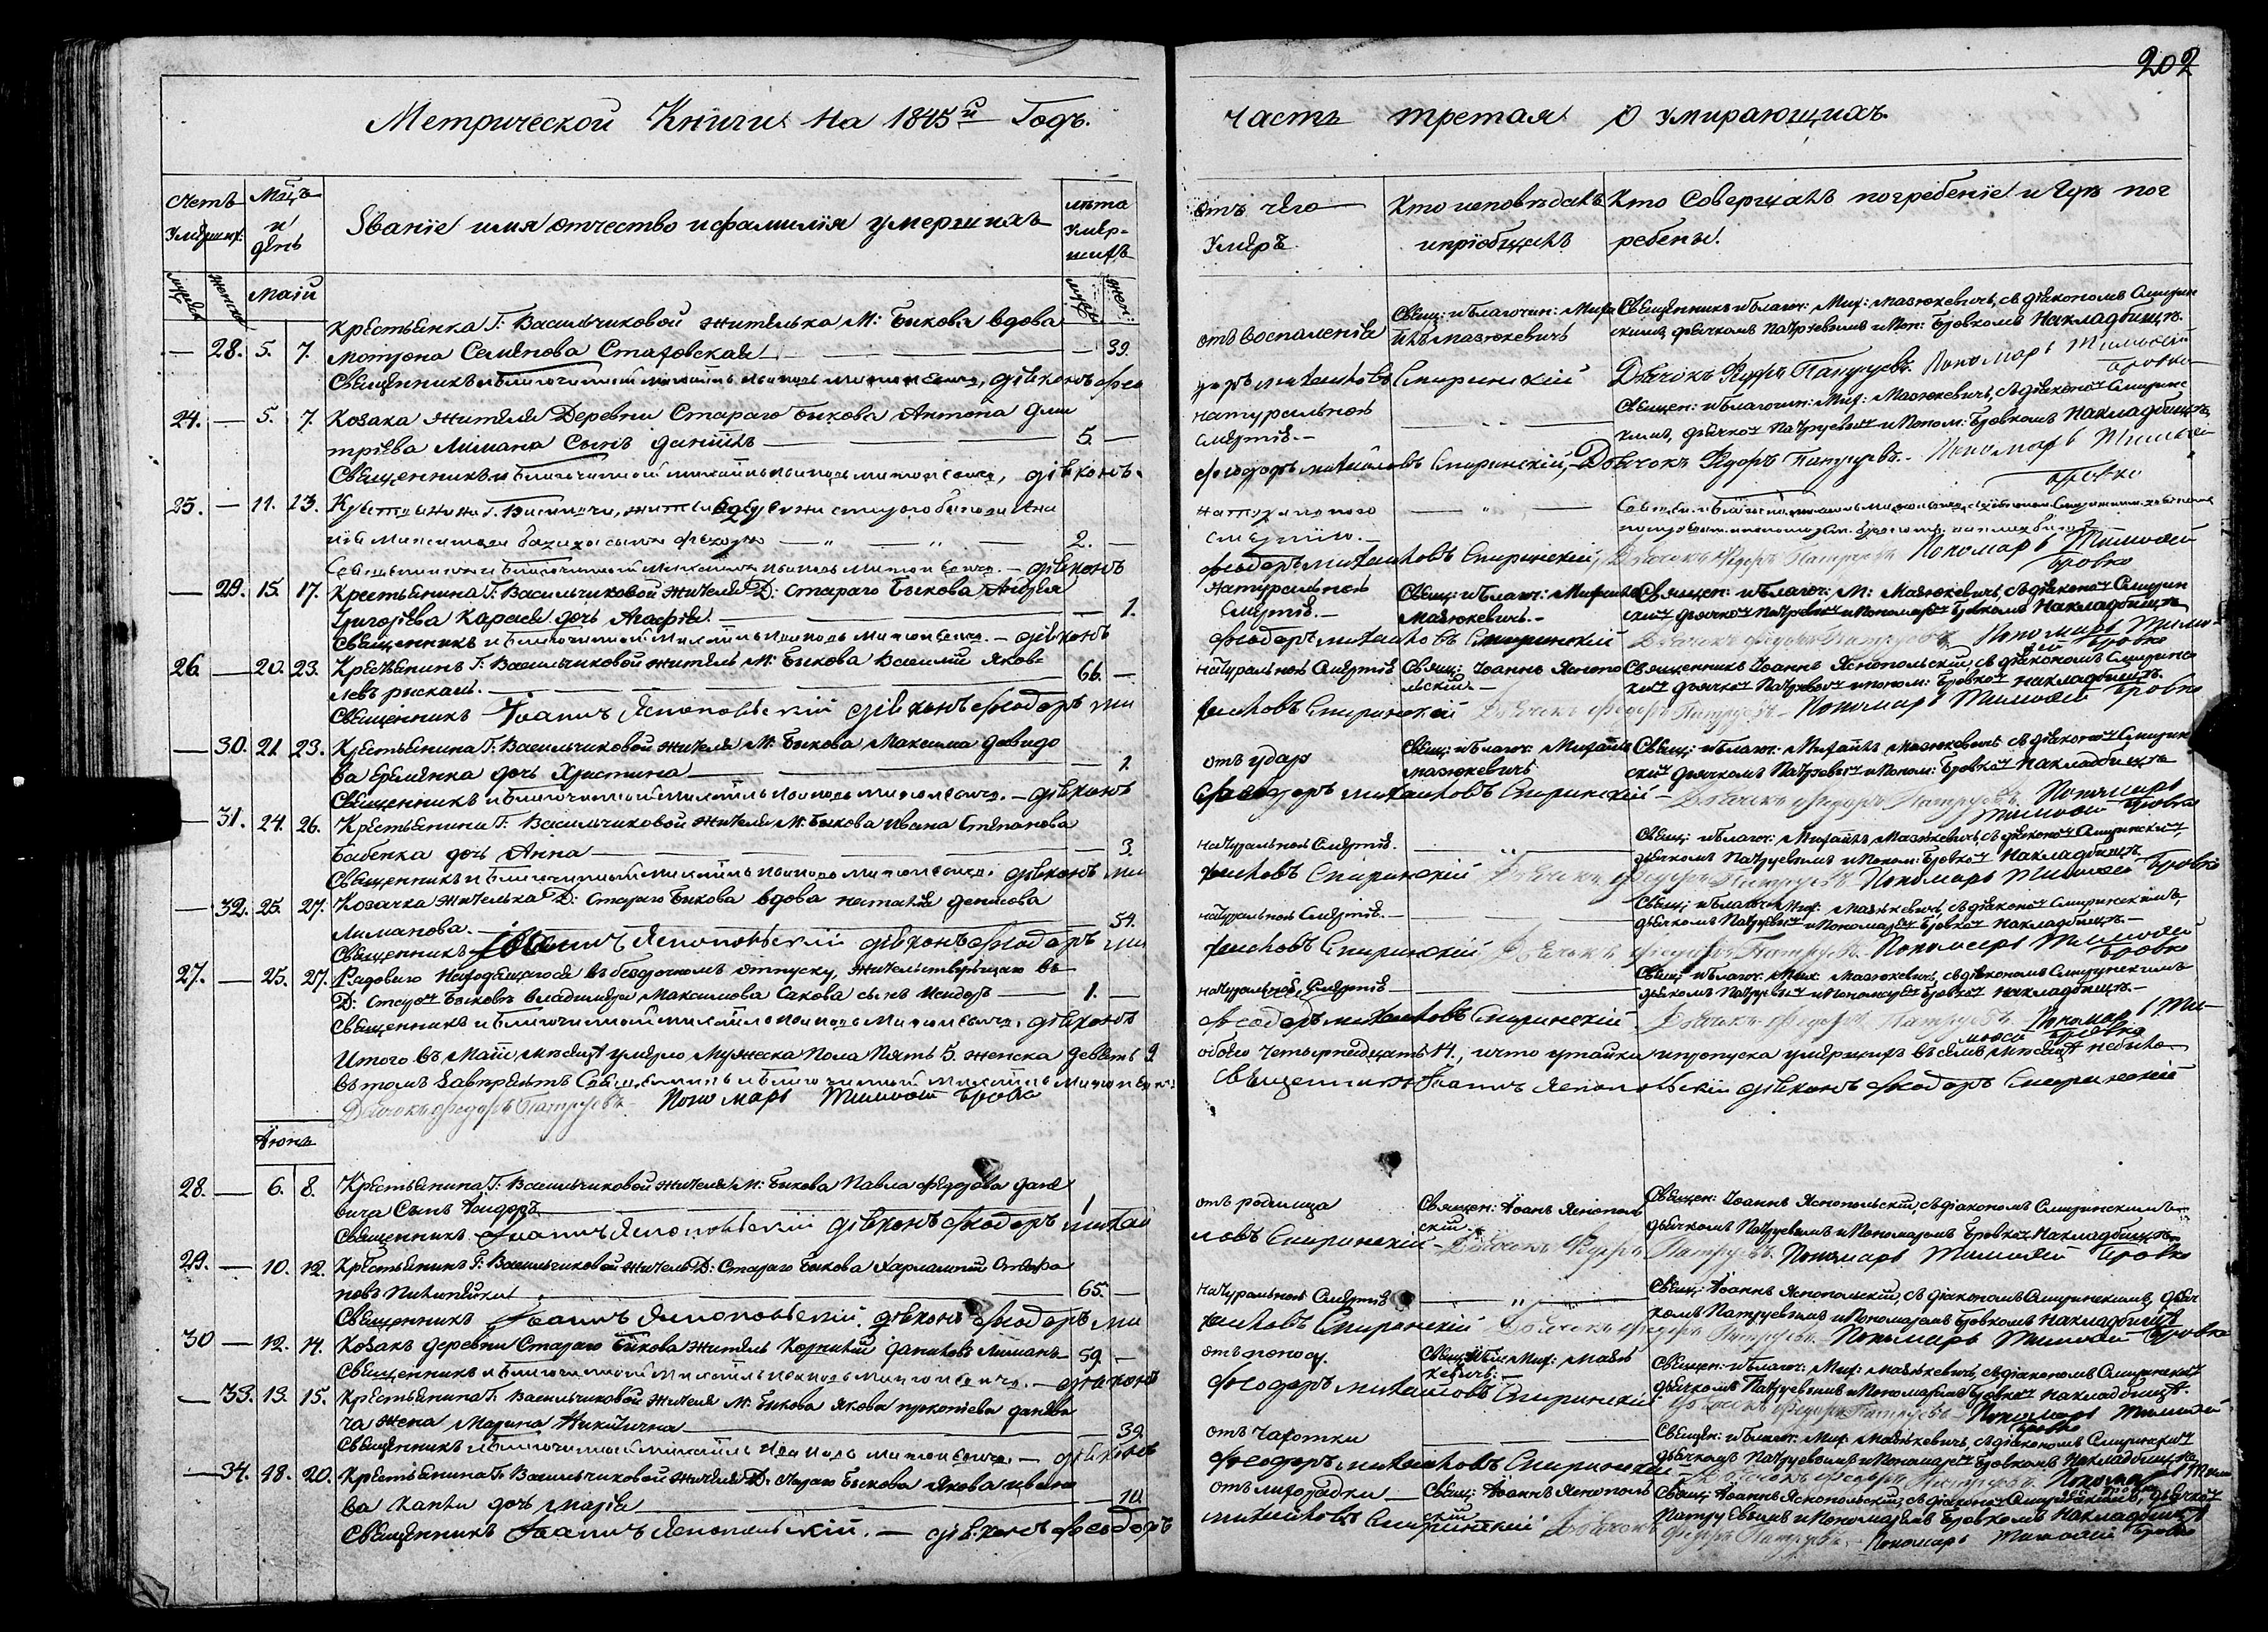 202
Метрической Книги на 1845й Годъ.
Часть третая о умирающихъ.
Счетъ умершихъ
Мцъ и день
Званіе имя отчество и фамилія умершихъ
лѣта умершихъ
отъ чего умеръ
Кто исповѣдалъ и пріобщалъ
Кто Совершалъ погребеніе и гдѣ погребены.
женска
Маій
муж:
жен:
Крестьянка Г: Васильчиковой жителька М: Быкова вдова
— 28. 5. 7. Мотрона Семенова Стаховская — 39.
отъ воспаленія
Свящ: и благочин: Михаилъ Мазюкевичъ
Священникъ и благоч: Мих: Мазюкевичъ, съ діакономъ Смирин
скимъ, дьячкомъ Патруевымъ и Пон: Бровкомъ На кладбищѣ.
Священникъ и благочинный Михаилъ
Смиринскій Дьячокъ Федоръ Патруевъ. Пономарь Тимофей Бровко
24. — 5. 7. Козака жителя Деревни Стараго Быкова Антона Дми
тріева Лимана Сынъ Даніилъ — 5. —
натуральной смертію.
Священ: и благочин: Мих: Мазюкевичъ, съ діакономъ Смиринс
кимъ, дьячком Патруевым и Поном: Бровкомъ На кладбищѣ
Священникъ и благочинный Михаилъ діаконъ
Феодоръ Михайловъ Смиринскій, Дьячокъ Федоръ Патруевъ. Пономарь Тимофей Бровко
25. — 11. 13. Крестьянина Г. Васильчи, жителя деревни стараго Быкова
сынъ Феодоръ — 2. —
смертію.
діаконъ
Феодоръ Михайловъ Смиринскій, Дьячокъ Федоръ Патруевъ Пономарь Тимофей Бровко
— 29. 15. 17. Крестьянина Г: Васильчиковой жителя Д: Стараго Быкова Андрея
Григоріева Карася дочь Агафія — 1.
натуральной смертію.
Свящ: и благоч: Михаилъ Мазюкевичъ.
Священ: и благоч: М: Мазюкевичъ, съ діакономъ Смирин
ским дьячком Патруевым и Пономарем Бровкомъ На кладбищѣ
Священникъ и благочинный Михаилъ — діаконъ
Феодоръ Михайловъ Смиринскій Дьячокъ Федоръ Патруевъ Пономарь Тимофей Бровко
26 — 20. 23. Крестьянинъ Г: Васильчиковой житель М: Быкова Василій Яков-
левъ рыскаль. — 66. —
натуральной смертію
Свящ: Іоаннъ Яснопольскій
Священникъ Іоаннъ Яснопольскій, съ діакономъ Смиринс
ким дьячком Патруевым и поном: Бровком На кладбищѣ
Священникъ Іоаннъ Яснопольскій діаконъ Феодоръ Ми
хайловъ Смиринскій Дьячокъ Федоръ Патруевъ — Пономарь Тимофей Бровко
— 30. 21 23. Крестьянина Г: Васильчиковой жителя М: Быкова Максима Давидо
ва Еремѣнка дочь Христина — 1.
отъ удару
Свящ: и благоч: Михаилъ Мазюкевичъ
Свящ: и благоч: Михаилъ Мазюкевичъ съ діаконом Смирин
ским дьячкомъ Патруевым и Поном: Бровком На кладбищѣ
Священникъ и благочинный Михаилъ — діаконъ
Феодоръ Михайловъ Смиринскій — Дьячокъ Федоръ Патруевъ Пономарь Тимофей Бровко
— 31. 24. 26. Крестьянина Г: Васильчиковой жителя М: Быкова Ивана Степанова
Бабенка дочь Анна — 3.
натуральной смертію.
Свящ: и благоч: Михаилъ Мазюкевичъ, съ діаконом Смиринским,
дьячкомъ Патруевымъ и Поном: Бровком На кладбищѣ
Священникъ и благочинный Михаилъ діаконъ Ми
хайловъ Смиринскій Дьячокъ Федоръ Патруевъ Пономарь Тимофей Бровко
— 32. 25. 27. Козачка жителька Д: Стараго Быкова вдова Наталія Денисова
Лиманова. — 54.
натуральной смертію.
Свящ: и благоч: Мих: Мазюкевичъ, съ діакономъ Смиринскимъ,
дьячкомъ Патруевым и Пономарем Бровком На кладбищѣ.—
Священникъ Іоаннъ Яснопольскій діаконъ Феодоръ Ми
хайловъ Смиринскій Дьячокъ Федоръ Патруевъ. Пономарь Тимофей Бровко
27. — 25. 27. Рядоваго находящагося въ безсрочномъ отпуску, жительствующаго въ
Д: Старом Быковѣ Владимера Максимова Сакова сынъ Исидоръ — 1. —
натуральной смертію
Свящ: и благоч: Мих: Мазюкевичъ, съ діакономъ Смиринскимъ
дьячкомъ Патруевым и Пономарем Бровком На кладбищѣ.—
Священникъ и благочинный Михаилъ діаконъ
Феодоръ Михайловъ Смиринскій Дьячокъ Федоръ Патруевъ Пономарь Тимофей Бровко
Итого въ Маіи мѣсяцѣ умерло Мужеска Пола Пять 5. женска девять 9.
обоего Четырнадцать 14., и что утайки и пропуска умершихъ въ семъ мѣсяцѣ небыло
въ томъ завѣряемъ Священникъ и благочинный Михаилъ
Священникъ Іоаннъ Яснопольскій діаконъ Феодоръ Смиринскій
Дьячокъ Федоръ Патруевъ. Пономарь Тимофей Бровко
Іюнь
28. — 6. 8. Крестьянина Г: Васильчиковой жителя М: Быкова Павла Федорова Дане
вича Сынъ Исидоръ — 1
отъ родимца
Священ: Іоанъ Яснопольскій
Священ: Іоаннъ Яснопольскій, съ діакономъ Смиринскимъ
дьячкомъ Патруевымъ и Пономаремъ Бровком На кладбищѣ
Священникъ Іоаннъ Яснопольскій діаконъ Феодоръ Михай
ловъ Смиринскій — Дьячокъ Федоръ Патруевъ. Пономарь Тимофей Бровко
29. — 10. 12. Крестьянинъ Г: Васильчиковой житель Д: Стараго Быкова Харлампій
65. —
натуральной смертію
Свящ: Іоаннъ Яснопольскій, съ діакономъ Смиринскимъ, дьяч
комъ Патруевымъ и Пономаремъ Бровкомъ На кладбищѣ
Священникъ Іоаннъ Яснопольскій. діаконъ Феодоръ Ми
хайловъ Смиринскій Дьячокъ Федоръ Патруевъ. Пономарь Тимофей Бровко
30 — 12. 14. Козакъ деревни Стараго Быкова житель Корнилій Даниловъ Лиманъ — 59. —
отъ поносу.
Свящ: и бла: Мих: Мазюкевичъ.
Священ: и благоч: Мих: Мазюкевичъ, съ діакономъ Смиринским
дьячкомъ Патруевымъ и Пономаремъ Бровком На кладбищѣ.
Священникъ и благочинный Михаилъ — діаконъ
Феодоръ Михайловъ Смиринскій Дьячокъ Федоръ Патруевъ — Пономарь Тимофей Бровко
— 33. 13. 15. Крестьянина Г: Васильчиковой жителя М: Быкова Якова Прокопіева Даневи
ча жена Марина Никитична — 39.
отъ чахотки
Священ: и благоч: Мих: Мазюкевичъ, съ діакономъ Смиринским
дьячкомъ Патруевымъ и Пономарем Бровкомъ На кладбищѣ
Священникъ и благочинный Михаилъ — діаконъ
Феодоръ Михайловъ Смиринскій Дьячокъ Федоръ Патруевъ. Пономарь
— 34. 18. 20. Крестьянина Г: Васильчиковой жителя Д: Стараго Быкова Якова Ивано
ва Капки дочь Марія — 10.
отъ лихорадки
Свящ: Іоаннъ Яснопольскій
Свящ: Іоаннъ Яснопольскій, съ діаконом Смиринскимъ, дьячком
Патруевымъ и Пономаремъ Бровкомъ На кладбищѣ
Священникъ Іоаннъ Яснопольскій. — діаконъ Феодоръ
Михайловъ Смиринскій Дьячокъ Федоръ Патруевъ. Пономарь Тимофей Бровко